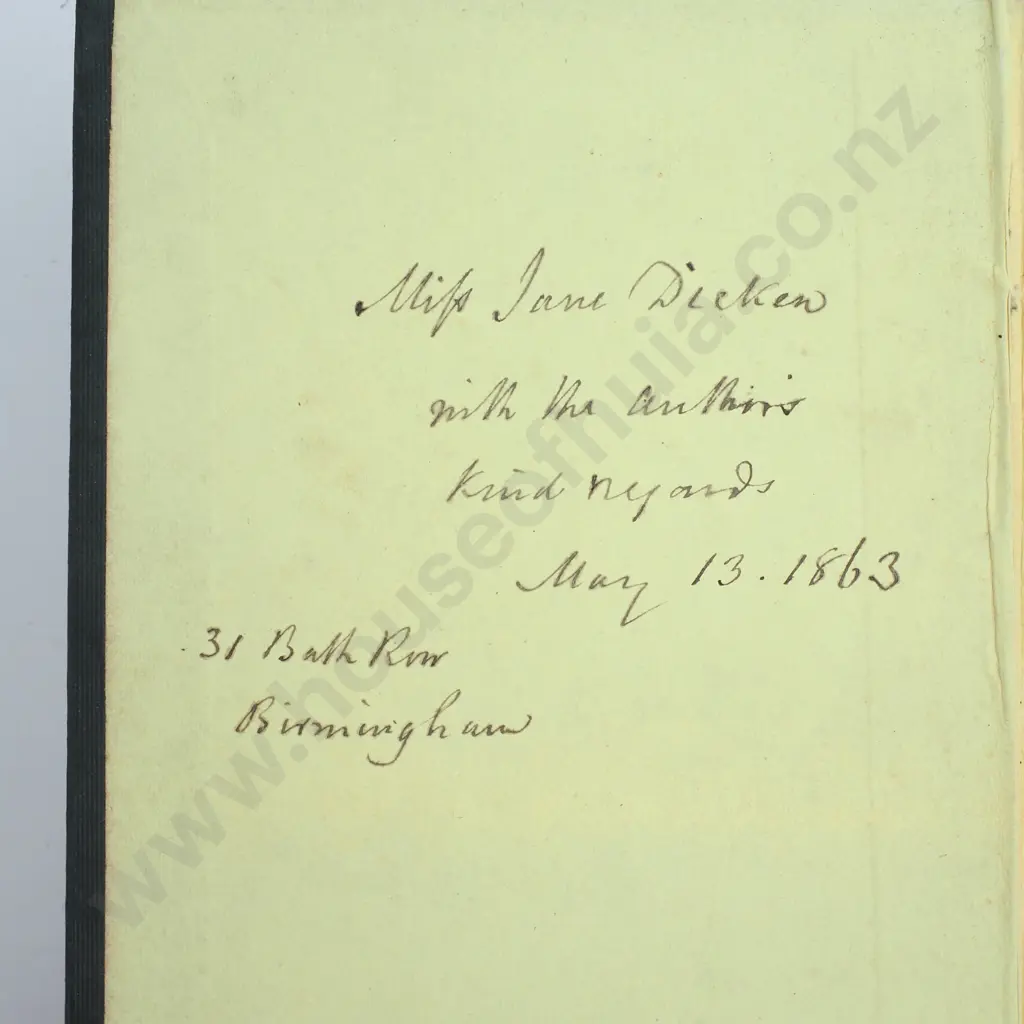 Miſs Jane Dicken
with the authors
kind regards
May 13. 1863
31 Bath Row
Birmingham
www.houseofhuia.co.nz